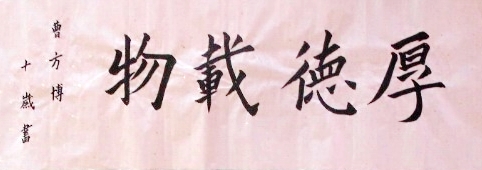 厚德載物
曹方博
十歲書